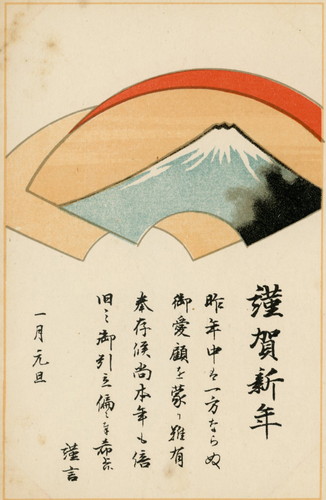 謹賀新年
昨年中は一方ならぬ
御愛顧を蒙り難有
奉存候尚本年も倍
旧之御引立偏ニ奉希上候
一月元旦
謹言